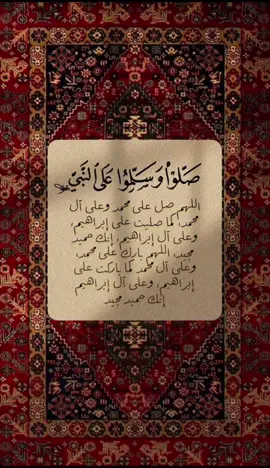 صَلُّوا۟ وَسَلِّمُوا۟ عَلَى ٱلنَّبِيِّ
اللهم صل على محمد وعلى آل
محمد، كما صليت على إبراهيم،
وعلى آل إبراهيم، إنك حميد
مجيد، اللهم بارك على محمد،
وعلى آل محمد كما باركت على
إبراهيم، وعلى آل إبراهيم
إنك حميد مجيد